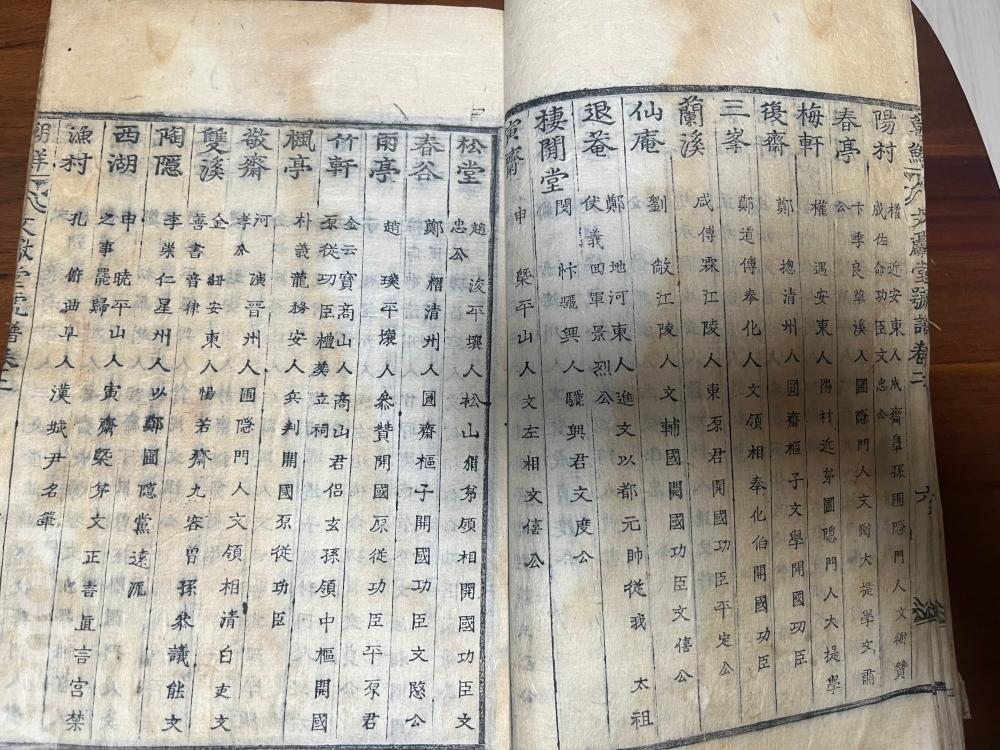 陽村 權 近安東人成齋皐孫圃隱門人文衡贊
成佐命功臣文忠公
春亭 卞季良草溪人圃隱門人文衡大提學文肅
公
梅軒 權 遇安東人陽村近弟圃隱門人大提學
復齋 鄭 摠清州人圓齋樞子文學開國功臣
三峯 鄭道傳奉化人文領相奉化伯開國功臣
蘭溪 咸傅霖江陵人東原君開國功臣平定公
仙庵 劉 敞江陵人文輔國開國功臣文僖公
退菴 鄭 地河東人進文以都元帥從我 太祖
伏義回軍景烈公
棲閒堂 閔 忭驪興人驪興君文度公
寅齋 申 槩平山人文左相文僖公
松堂 趙 浚平壤人松山狷弟領相開國功臣文
忠公
春谷 鄭 擢清州人圓齋樞子開國功臣文愍公
雨亭 趙 璞平壤人參贊開國原從功臣平原君
竹軒 金云寶商山人商山君侶玄孫領中樞開國
原從功臣禮葬立祠
楓亭 朴義龍務安人兵判開國原從功臣
敬齋 河 演晉州人圃隱門人文領相清白吏文
孝公
雙溪 金 紐安東人惕若齋九容曾孫參議能文
善書音律
陶隱 李崇仁星州人以鄭圃隱黨遠流
西湖 申 曉平山人寅齋槩弟文 正言直言宮禁
之事罷歸
漁村 孔 俯曲阜人漢城尹名筆